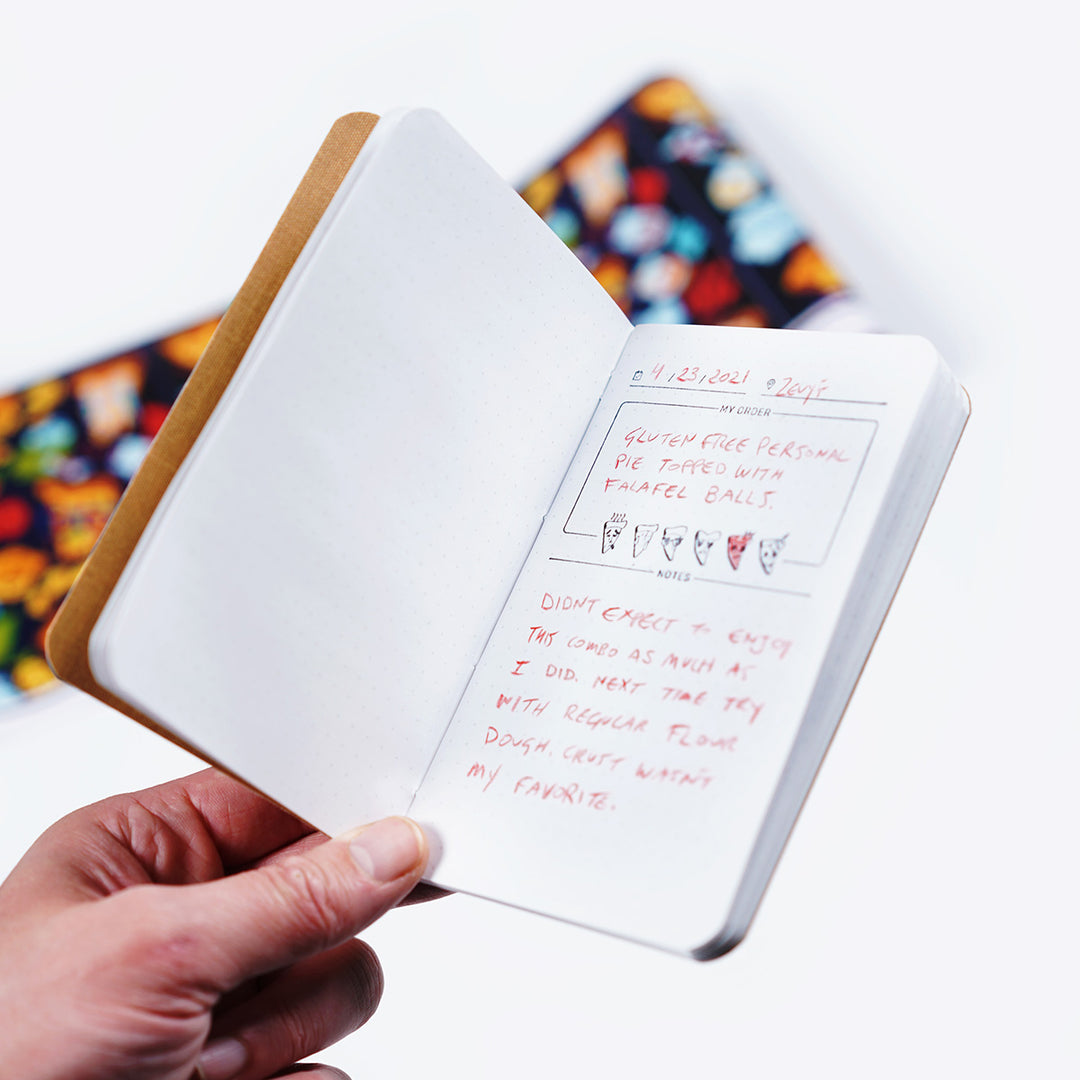 4/23/2021 Zeny's
MY ORDER
GLUTEN FREE PERSONAL
PIE TOPPED WITH
FALAFEL BALLS.
NOTES
DIDNT EXPECT to ENJOY
THIS COMBO AS MUCH AS
I DID. NEXT TIME TRY
WITH REGULAR FLOUR
DOUGH. CRUST WASN'T
MY FAVORITE.